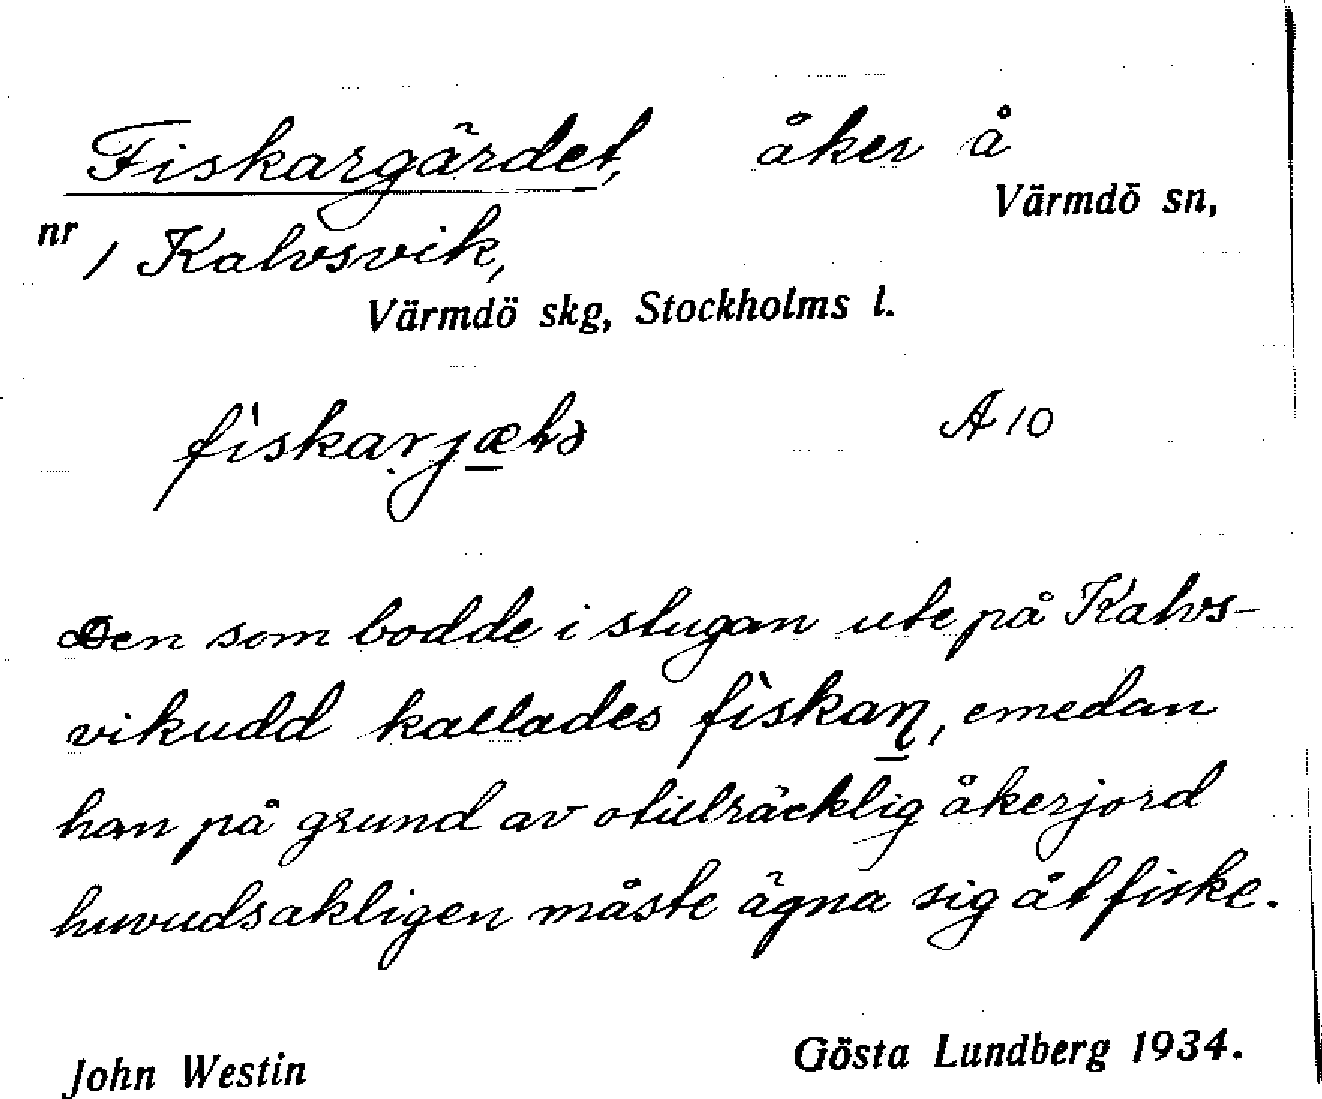 Fiskargärdet, åker å
Värmdö sn,
nr 1 Kalvsvik,
Värmdö skg, Stockholms l.
A 10
Den som bodde i stugan ute på Kalvs-
vikudd kallades fiskaṇ, emedan
han på grund av otillräcklig åkerjord
huvudsakligen måste ägna sig åt fiske.
John Westin Gösta Lundberg 1934.